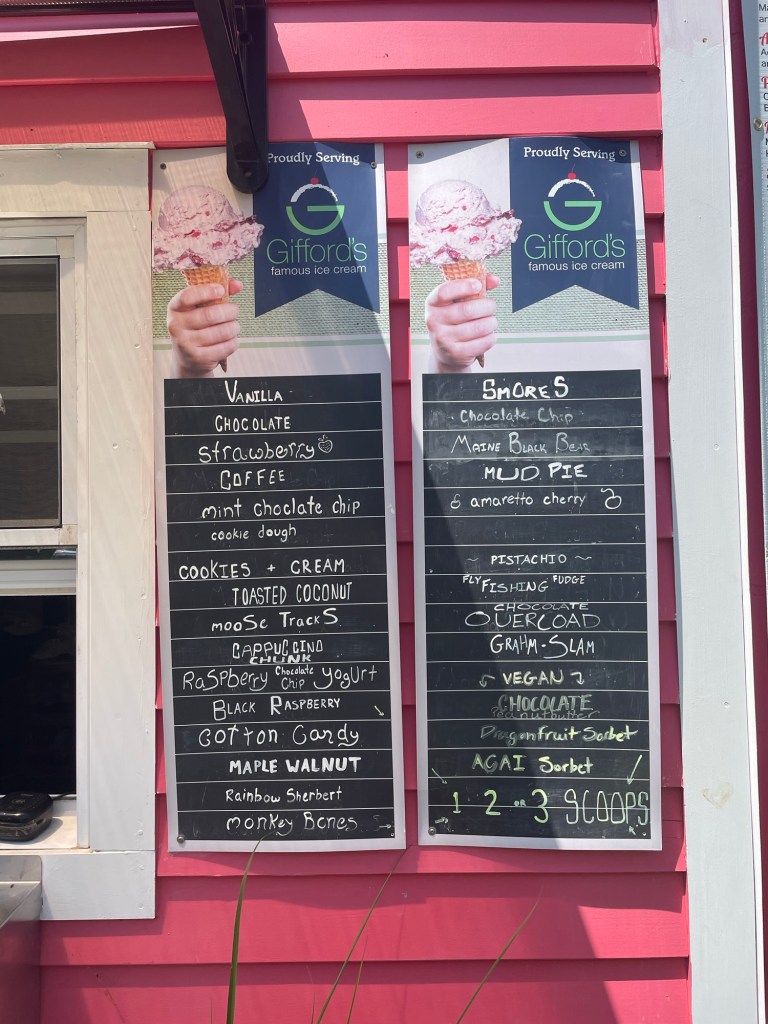 Proudly Serving
G
Gifford's
famous ice cream
VANILLA
CHOCOLATE
Strawberry
COFFEE
mint choclate chip
cookie dough
COOKIES + CREAM
TOASTED COCONUT
moose Tracks
CAPPUCCINO
CHUNK
Raspberry Chocolate Chip yogurt
BLACK RASPBERRY
Cotton Candy
MAPLE WALNUT
Rainbow Sherbert
monkey Bones
Proudly Serving
G
Gifford's
famous ice cream
SMORES
Chocolate Chip
MAINE BLACK BEAR
MUD PIE
amaretto cherry
~ PISTACHIO ~
FLY FISHING FUDGE
CHOCOLATE
OVERLOAD
GRAHM-SLAM
VEGAN
CHOCOLATE
Peanutbutter
Dragonfruit Sorbet
AÇAI Sorbet
1 2 OR 3 SCOOPS